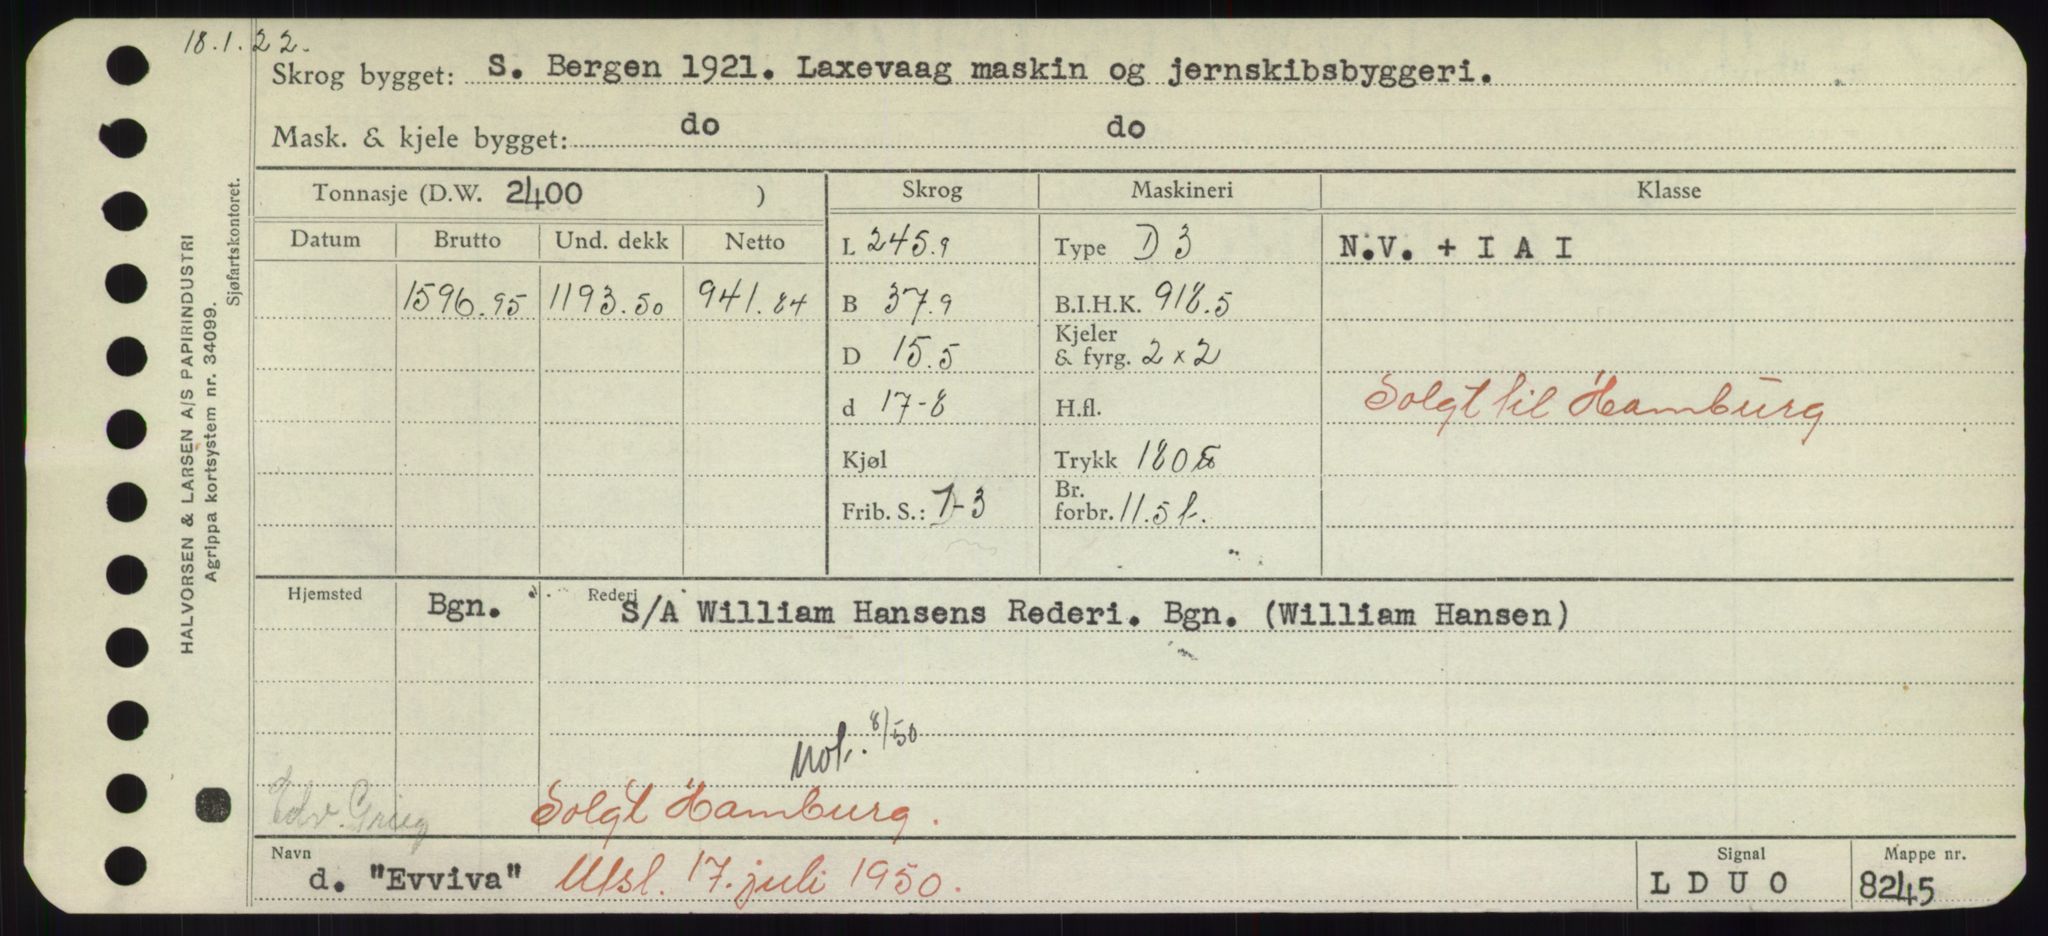 18.1.22.
Skrog bygget: S. Bergen 1921. Laxevaag maskin og jernskibsbyggeri.
Mask. & kjele bygget: do do
Tonnasje (D.W. 2400 ) Skrog Maskineri Klasse
Datum Brutto Und. dekk Netto L 245.9 Type D 3 N.V. + I A I
1596.95 1193.50 941.84 B 37.9 B.I.H.K. 918.5
D 15.5 Kjeler & fyrg. 2 x 2
d 17-8 H.fl. Solgt til Hamburg
Kjøl Trykk 180
Frib. S.: 1-3 Br. forbr. 11.5 t.
Hjemsted Bgn. Rederi S/A William Hansens Rederi. Bgn. (William Hansen)
8/50
Edv. Grieg Solgt Hamburg.
Navn d. "Evviva" Utsl. 17. juli 1950. Signal L D U O Mappe nr. 8245
HALVORSEN & LARSEN A/S PAPIRINDUSTRI
Agrippa kortsystem nr. 34099.
Sjøfartskontoret.